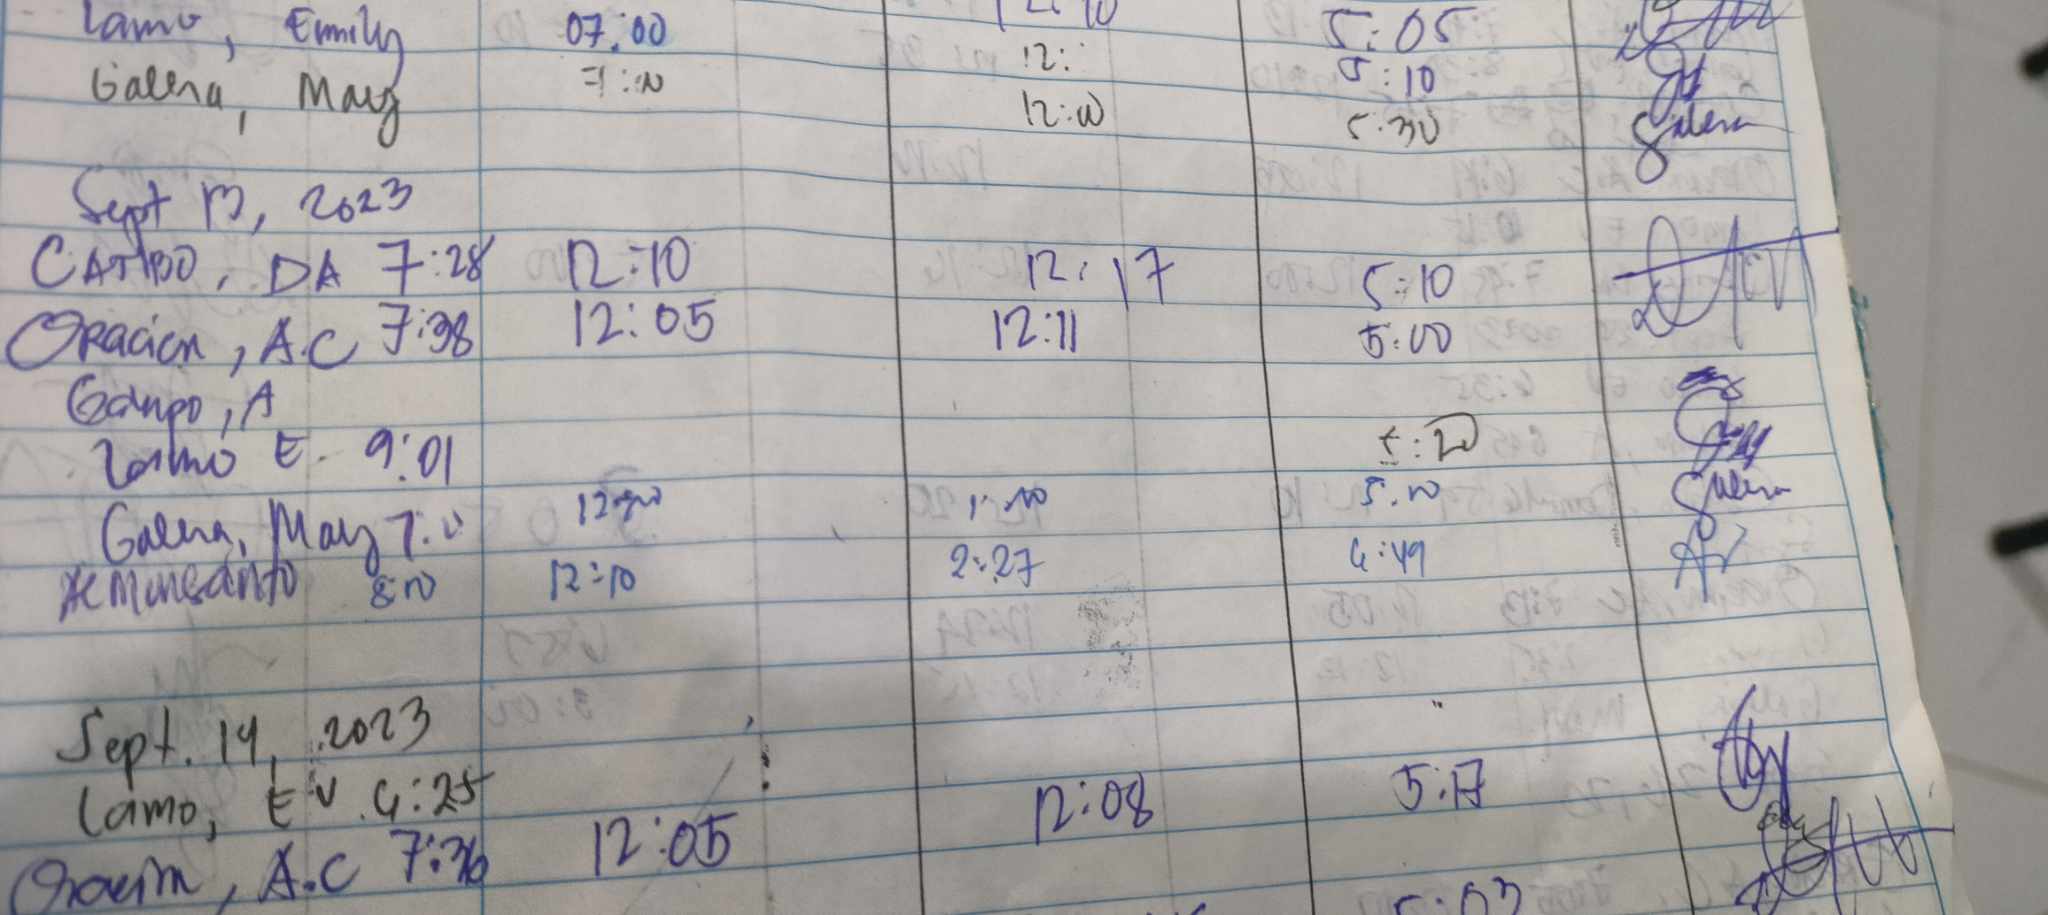 Lamo, Emily 07:00 12:10 5:05
Galera, May 7:00 12: 5:10
12:00 5:30 Galera
Sept 13, 2023
CATIBO, DA 7:28 12:10 12:17 5:10
Oracion, A.C 7:38 12:05 12:11 5:00
Gampo, A
Lamo E. 9:01 5:20
Galera, May 7:0 12:00 1:00 5:00 Galera
Monsanto 8:10 12:10 2:27 4:49
Sept. 14, 2023
Lamo, E V. 6:25 12:08 5:17
Oracion, A.C 7:36 12:05
5:03